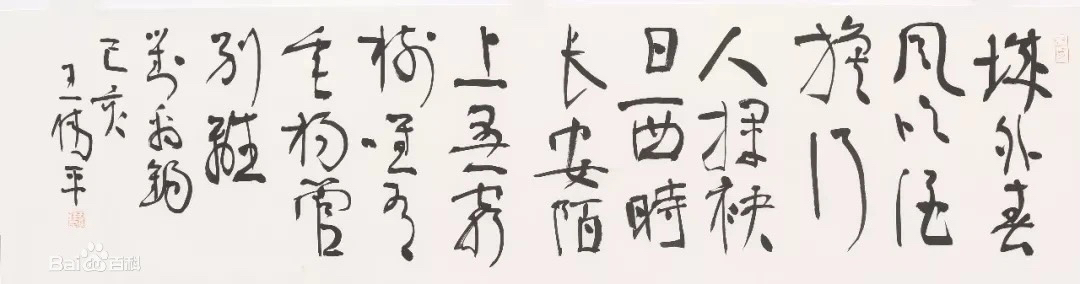 城外春
风吹酒
旗行
人揮袂
日西時
长安陌
上无穷
树唯有
垂杨管
别離
劉禹锡
己亥
王偉平
Bai百科